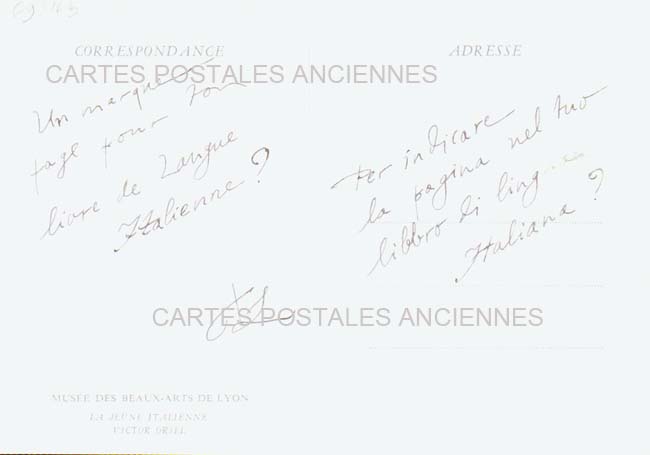 CORRESPONDANCE
ADRESSE
CARTES POSTALES ANCIENNES
Un marque
page pour ton
livre de Langue
Italienne ?
Per indicare
la pagina nel tuo
libbro di ling
Italiana ?
CARTES POSTALES ANCIENNES
MUSÉE DES BEAUX-ARTS DE LYON
LA JEUNE ITALIENNE
VICTOR ORSEL